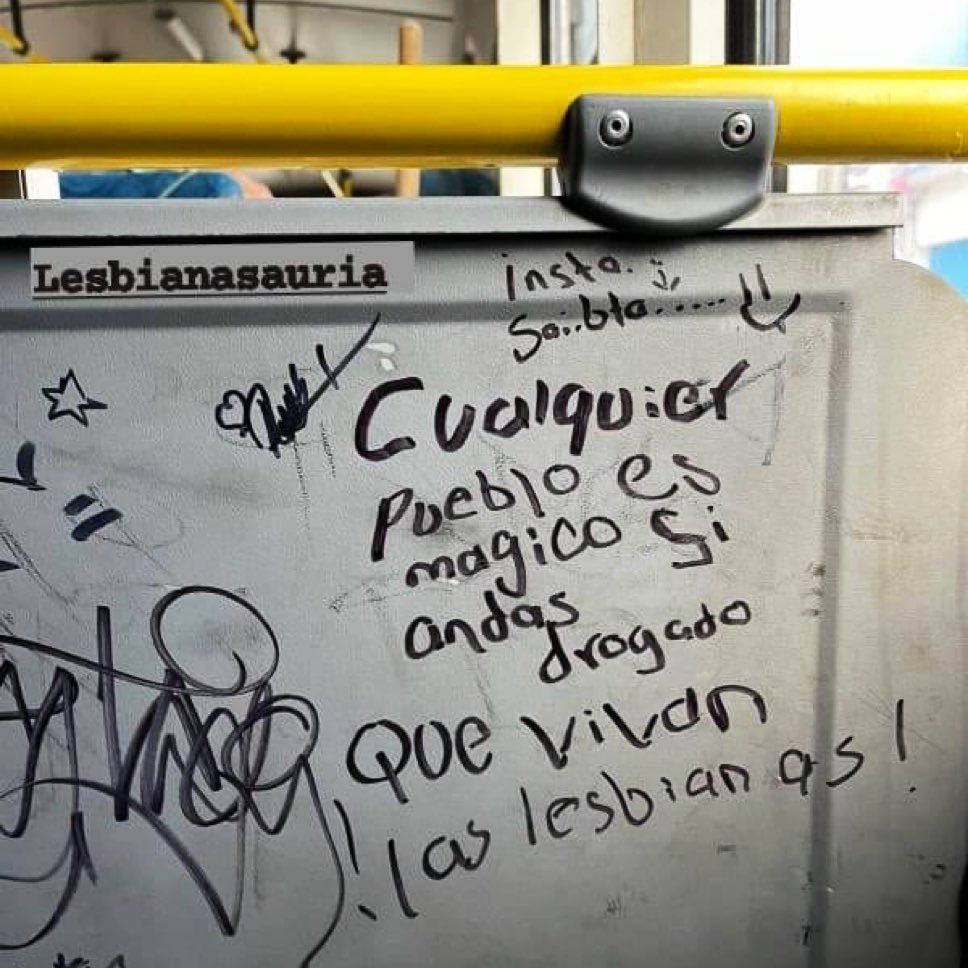 Lesbianasauria
insta.
Cualquier
pueblo es
magico si
andas
drogado
QUE VIVAN
¡las lesbianas!